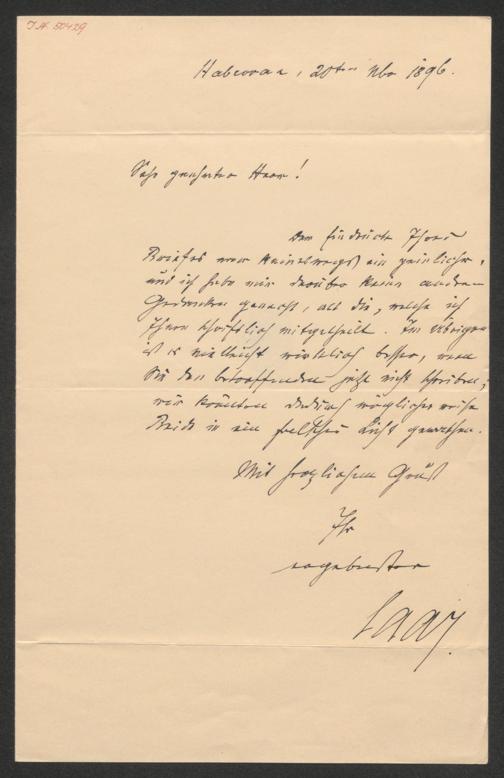 I.N. 50429
Habrovan, 20ten Nbr 1896.
Sehr geehrter Herr!
Der Eindruck Ihres
Briefes war keineswegs ein peinlicher,
und ich habe mir darüber keine anderen
Gedanken gemacht, als die, welche ich
Ihnen schriftlich mitgetheilt. Im Übrigen
ist es vielleicht wirklich besser, wenn
Sie den betreffenden jetzt nicht schreiben;
wir könnten dadurch möglicher weise
Beide in ein falsches Licht gerathen.
Mit herzlichem Gruß
Ihr
ergebenster
Saar.